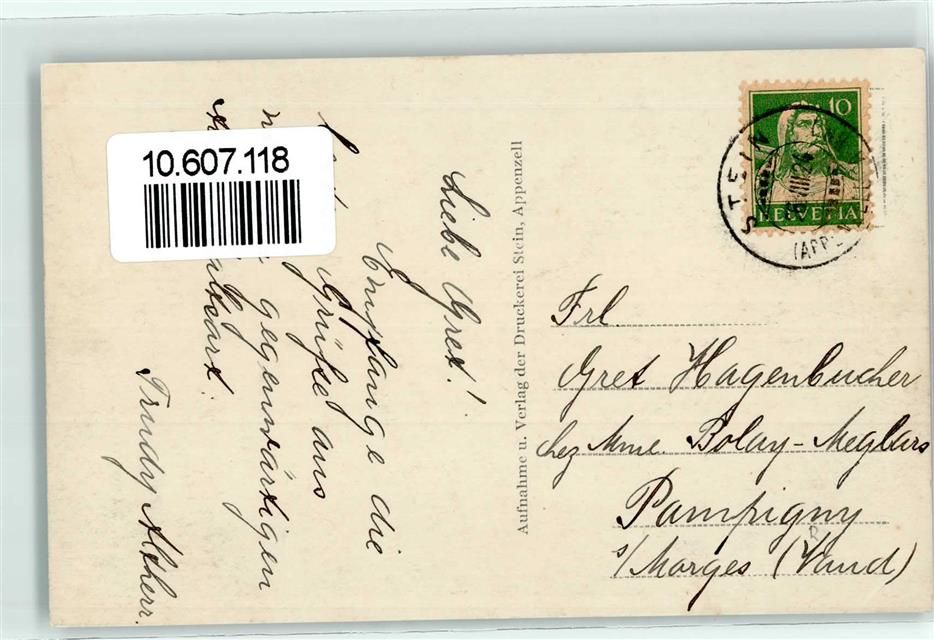 10.607.118
Liebe Gret!
Empfange die
Grüße aus
gegenwärtigen
Trudy Altherr.
Aufnahme u. Verlag der Druckerei Stein, Appenzell
10
HELVETIA
STEIN
(APP
Frl.
Gret Hagenbucher
chez Mme. Bolay-Meylars
Pampigny
s/Morges (Vaud)